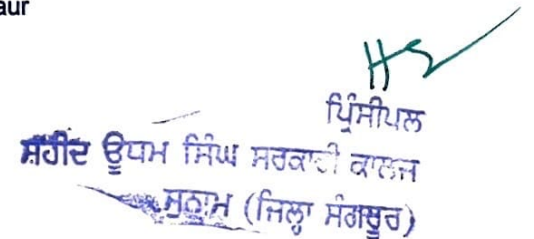 aur
ਪ੍ਰਿੰਸੀਪਲ
ਸ਼ਹੀਦ ਊਧਮ ਸਿੰਘ ਸਰਕਾਰੀ ਕਾਲਜ
ਸੁਨਾਮ (ਜਿਲ੍ਹਾ ਸੰਗਰੂਰ)